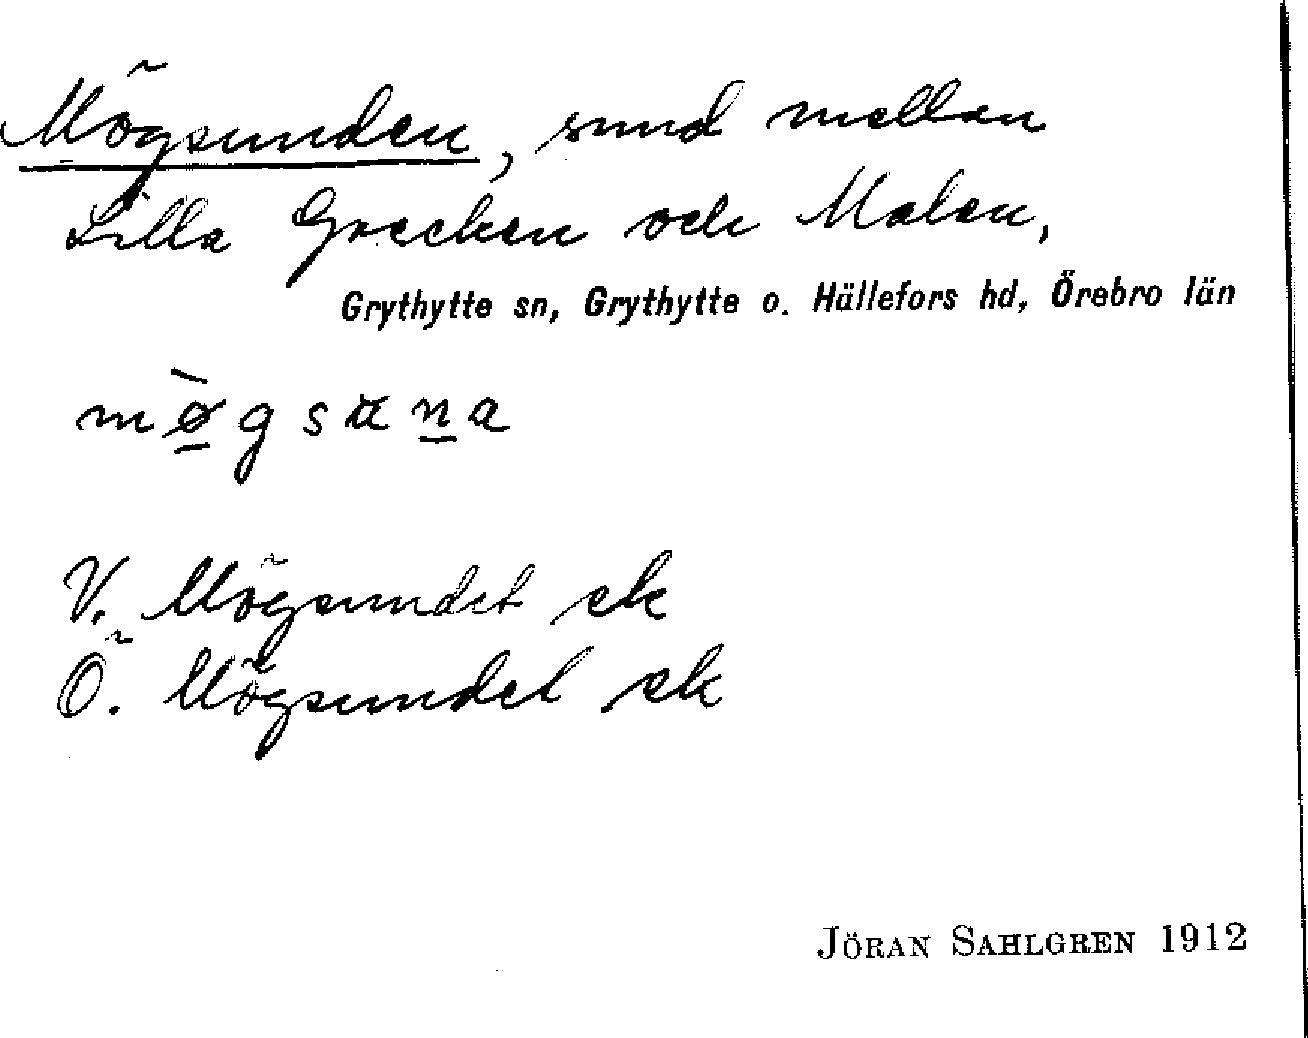 Mögsunden, sund mellan
Lilla Grecken och Malen,
Grythytte sn, Grythytte o. Hällefors hd, Örebro län
mø̀gsuna
V. Mögsundet ek
Ö. Mögsundet ek
JÖRAN SAHLGREN 1912